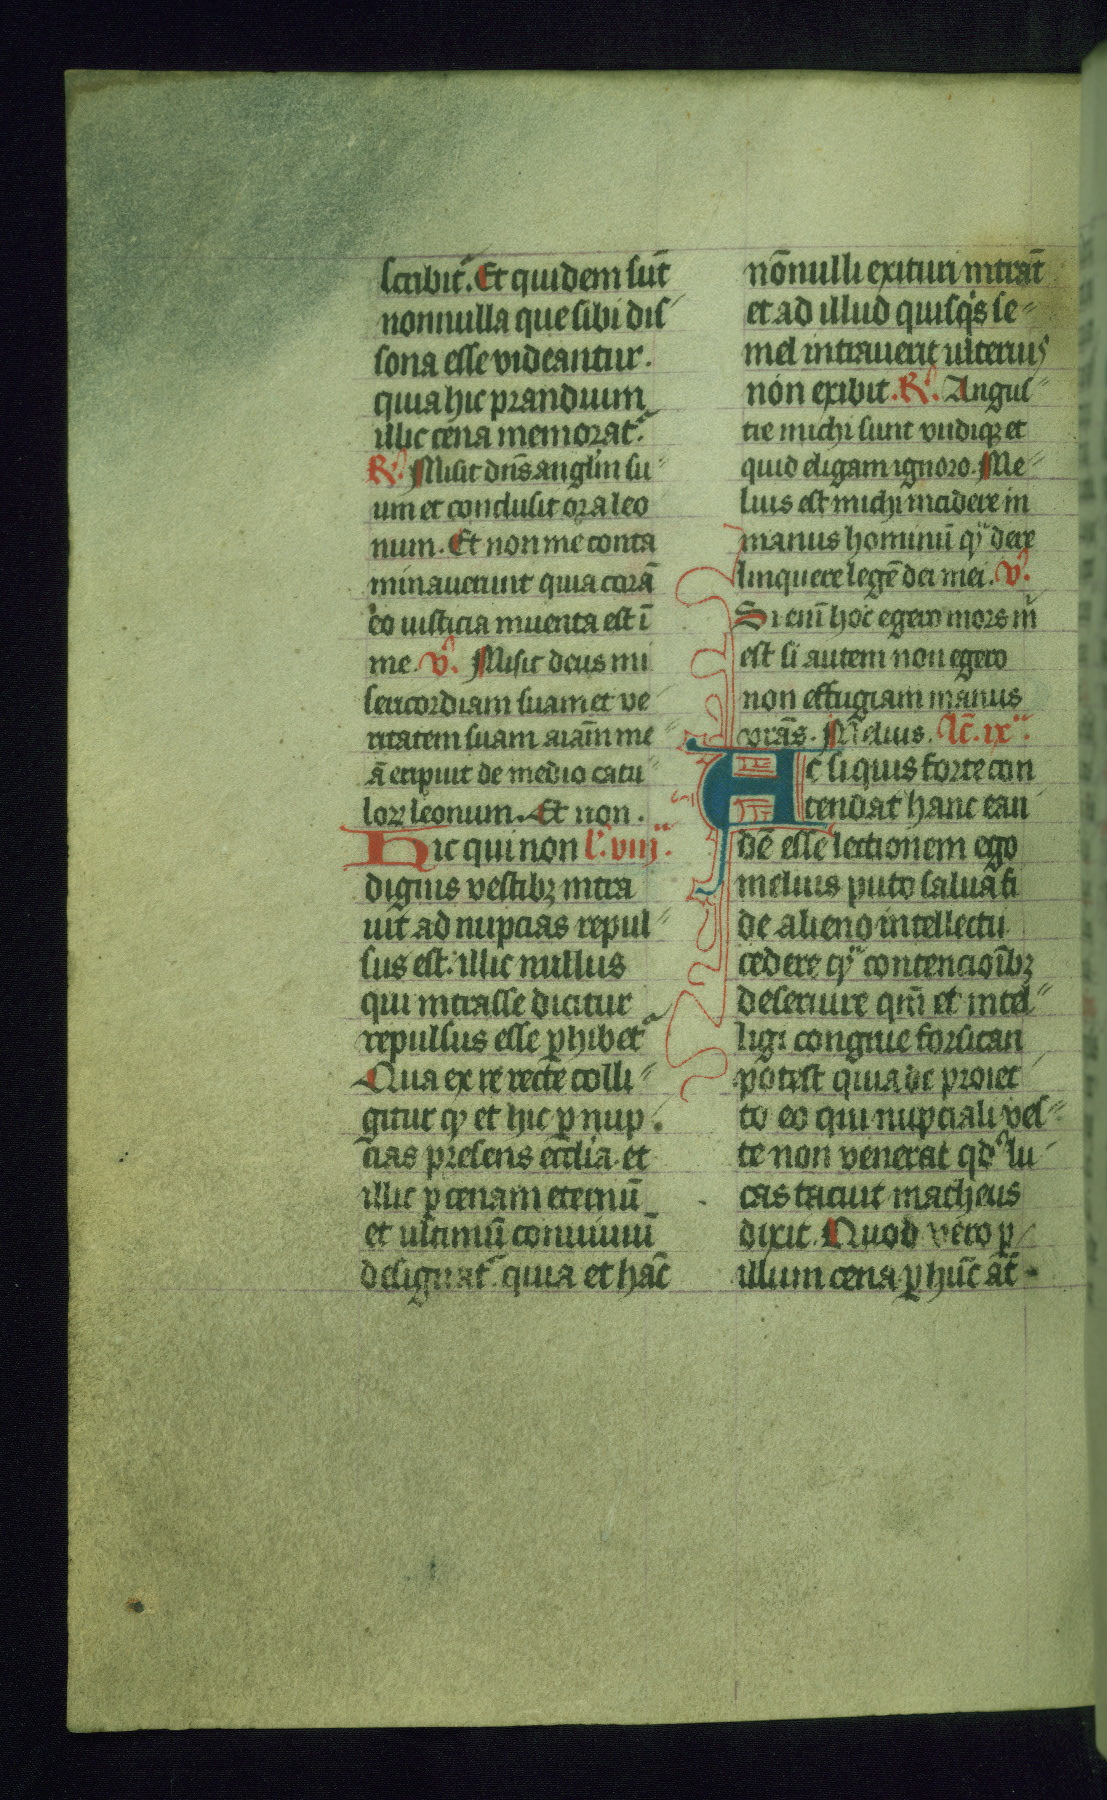 scribit᷑. Et quidem su̅t
nonnulla que sibi dis
sona esse videantur.
quia hic prandium
illic cena memorat᷑.
R̷. Misit dn̅s angl̅m su
um et conclusit ora leo
num. Et non me conta
minaverunt quia cora̅
eo iusticia inuenta est i̅
me. v̷. Misit deus mi
sericordiam suam et ve
ritatem suam aia̅m me
a̅ eripuit de medio catu
loꝝ leonum. Et non.
Hic qui non l̅c. viij.
dignis vestibꝫ intra
uit ad nupcias repul
sus est. illic nullus
qui intrasse dicitur
repulsus esse ꝑhibet᷑
Qua ex re recte colli
gitur qꝫ et hic ꝑ nup
cias presens eccl̅ia et
illic ꝑ cenam eternu̅
et ultimu̅ conuiuiu̅
designat᷑ quia et ha̅c
no̅nulli exituri intra̅t
et ad illud quisq's se
mel intrauerit ulterius
non exibit. R̷. Angus
tie michi sunt vndiqꝫ et
quid eligam ignoro. Me
lius est michi incidere in
manus hominu̅ qͣ dere
linquere lege̅ dei mei. v̷.
Si eni̅ hoc egero mors m̅
est si autem non egero
non effugiam manus
vr̅as. Melius. l̅c. ix.
Ac si quis forte con
tendat hanc ean
de̅ esse lectionem ego
melius puto salua fi
de alieno intellectu
cedere qͣ contencio̅ibꝫ
deseruire qm̅ et intel
ligi congrue forsitan
potest quia de proiec
to eo qui nupciali ves
te non venerat qd̓ lu
cas tacuit matheus
dixit. Quod vero ꝑ
illum cena ꝑ hu̅c a̅t